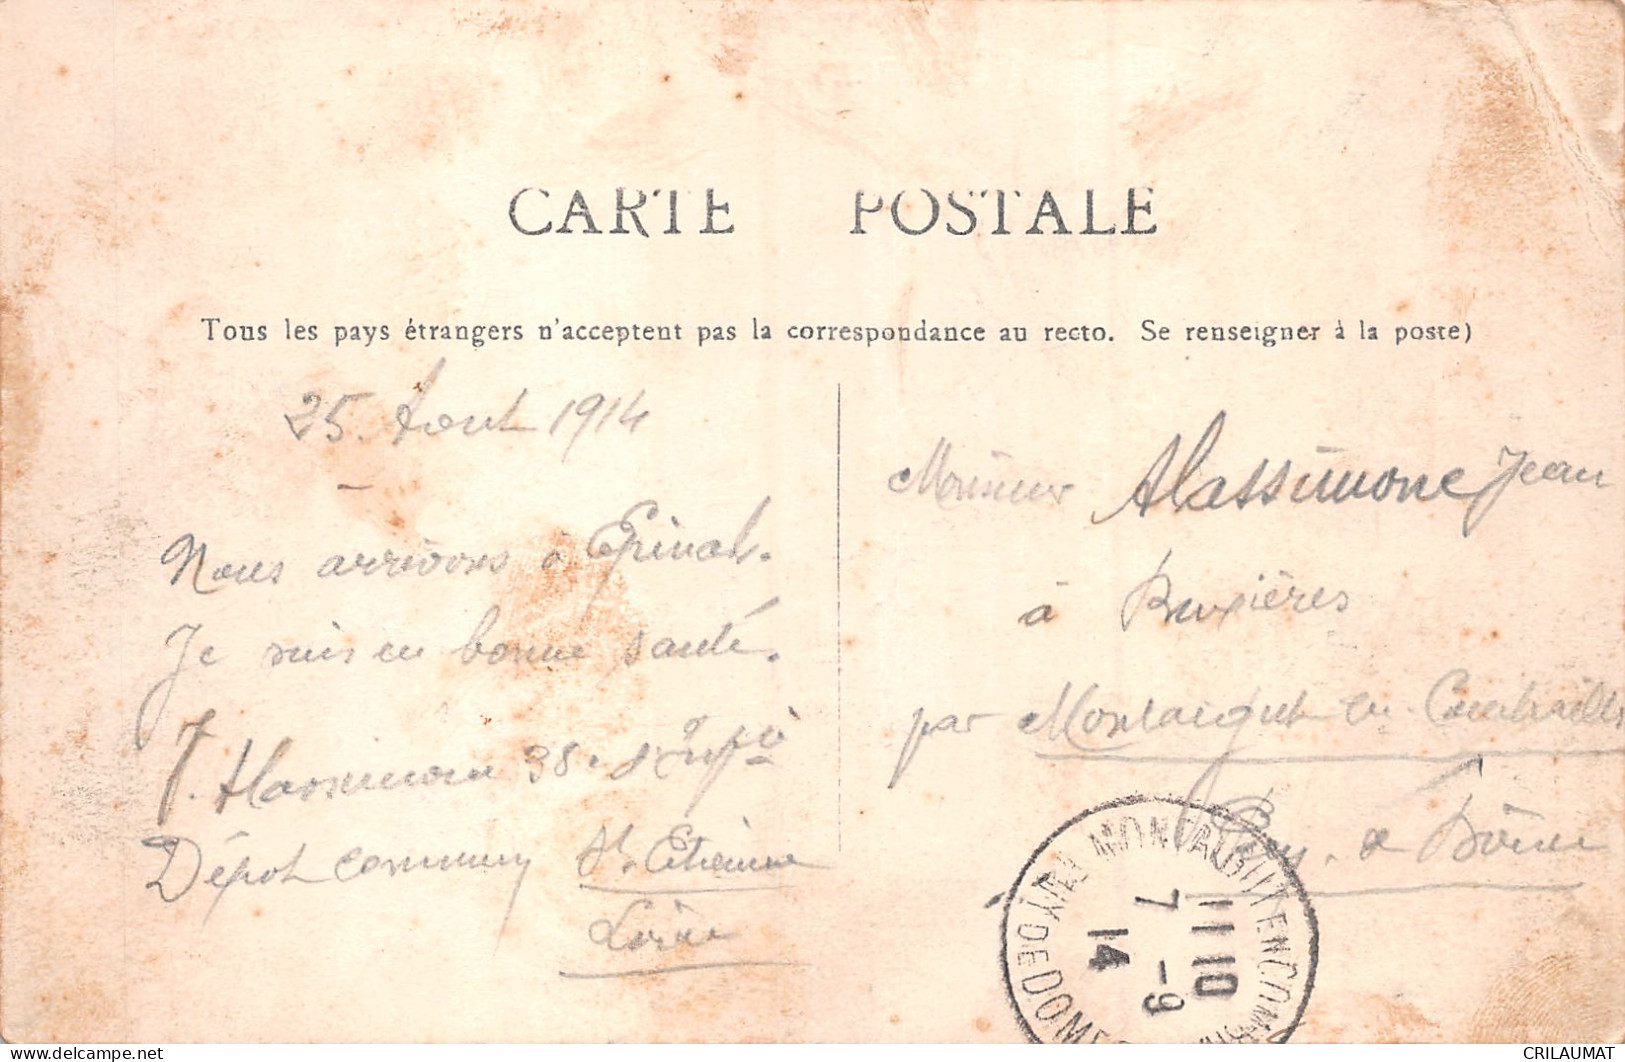 CARTE POSTALE
Tous les pays étrangers n'acceptent pas la correspondance au recto. Se renseigner à la poste)
25. Aout 1914
Nous arrivons à Epinal.
Je suis en bonne santé.
J. Alassimone 38e d'Infie
Dépot commun St. Etienne
Loire
Monsieur Alassimone Jean
à Buxières
par Montaigut en Combrailles
Puy. de Dôme
MONTAIGUT EN COM
PUY DE DOME
11 10
7 - 9
14
CRILAUMAT